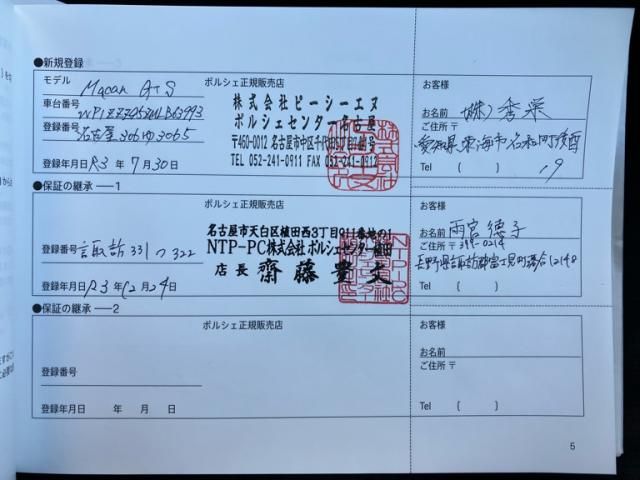 ●新規登録
モデル Macan GTS
ポルシェ正規販売店
お客様
車台番号
株式会社ピーシーエヌ
ポルシェセンター名古屋
お名前 (株) 秀栄
登録番号 名古屋 306 ゆ 3065
〒460-0012 名古屋市中区千代田5丁目
TEL 052-241-0911 FAX 052-241
ご住所 〒
愛知県東海市名和町
登録年月日 R3年 7月30日
Tel ( ) 19
●保証の継承 ―1
ポルシェ正規販売店
お客様
名古屋市天白区植田西3丁目911番地の1
NTP-PC株式会社 ポルシェセンター植田
お名前 雨宮 徳子
登録番号 諏訪 331 つ 322
店長 齋藤 豊文
ご住所 〒399-0214
長野県諏訪郡富士見町落合12148
登録年月日 R3年12月24日
Tel ( )
●保証の継承 ―2
ポルシェ正規販売店
お客様
お名前
登録番号
ご住所 〒
登録年月日 年 月 日
Tel ( )
5